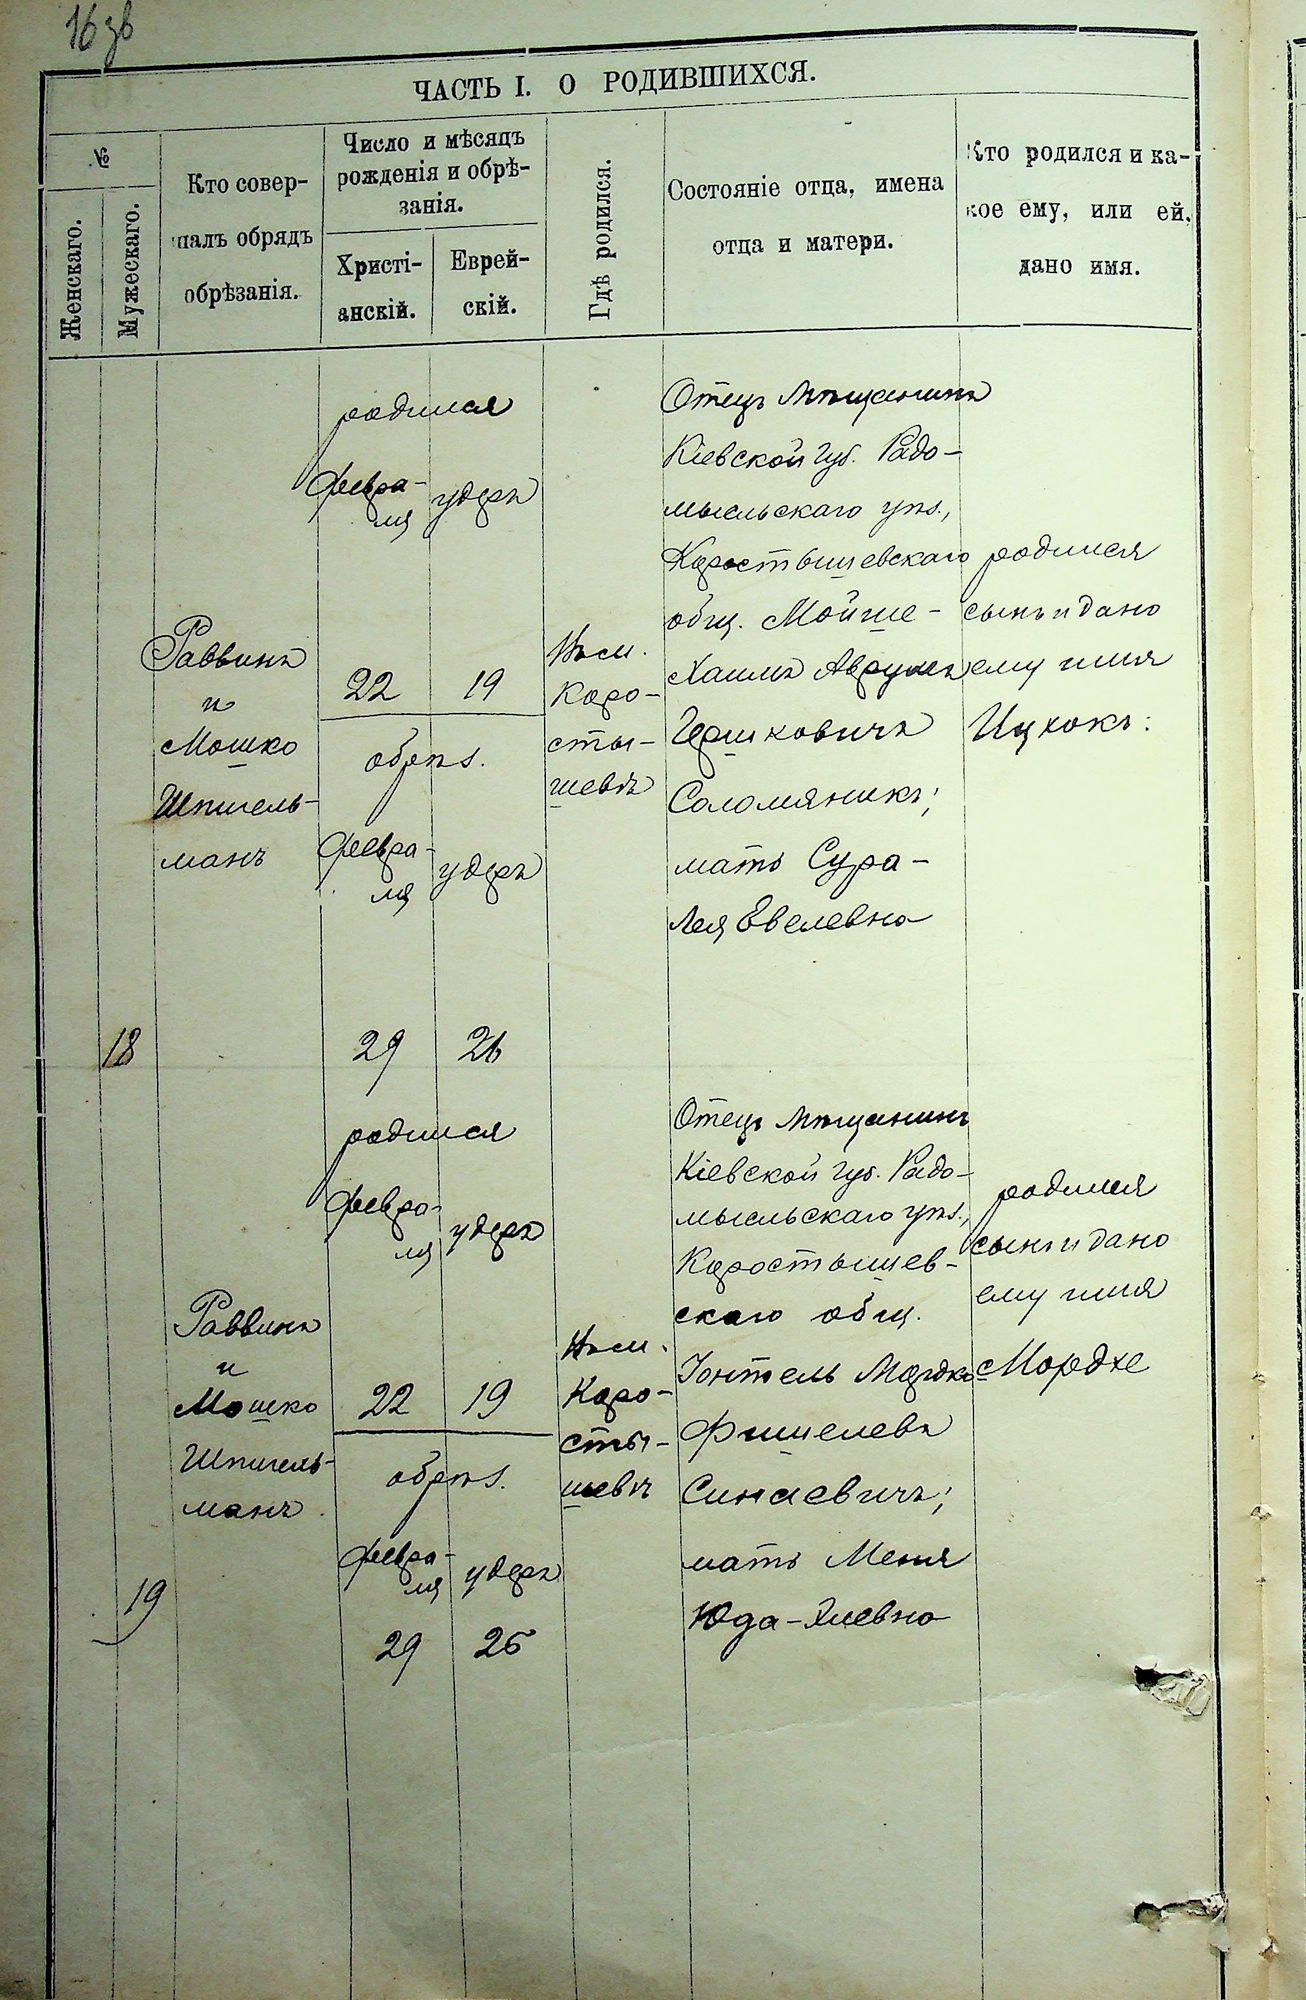 16 зв
ЧАСТЬ I. О РОДИВШИХСЯ.
№
Женскаго.
Мужескаго.
Кто совер-
шалъ обрядъ
обрѣзанія.
Число и мѣсяцъ
рожденія и обрѣ-
занія.
Христі-
анскій.
Еврей-
скій.
Гдѣ родился.
Состояніе отца, имена
отца и матери.
Кто родился и ка-
кое ему, или ей,
дано имя.
18
Раввинъ
и
Мошко
Шпигель-
манъ
родился
Февра-
ля
удеръ
22
19
обрѣз.
Февра-
ля
удеръ
29
26
Въ м.
Коро-
сты-
шевѣ
Отецъ мѣщанинъ
Кіевской губ. Радо-
мысльскаго уѣз.,
Коростышевскаго
общ. Мойше-
Хаимъ Аврумъ
Гершковичъ
Соломяникъ;
мать Сура-
Лея Евелевна
родился
сынъ и дано
ему имя
Ицхокъ.
19
Раввинъ
и
Мошко
Шпигель-
манъ
родился
Февра-
ля
удеръ
22
19
обрѣз.
Февра-
ля
удеръ
29
26
Въ м.
Коро-
сты-
шевѣ
Отецъ мѣщанинъ
Кіевской губ. Радо-
мысльскаго уѣз.,
Коростышев-
скаго общ.
Іонтель Мордко
Фишелевъ
Синаевичъ;
мать Меня
Юда-Хлевна
родился
сынъ и дано
ему имя
Мордхе